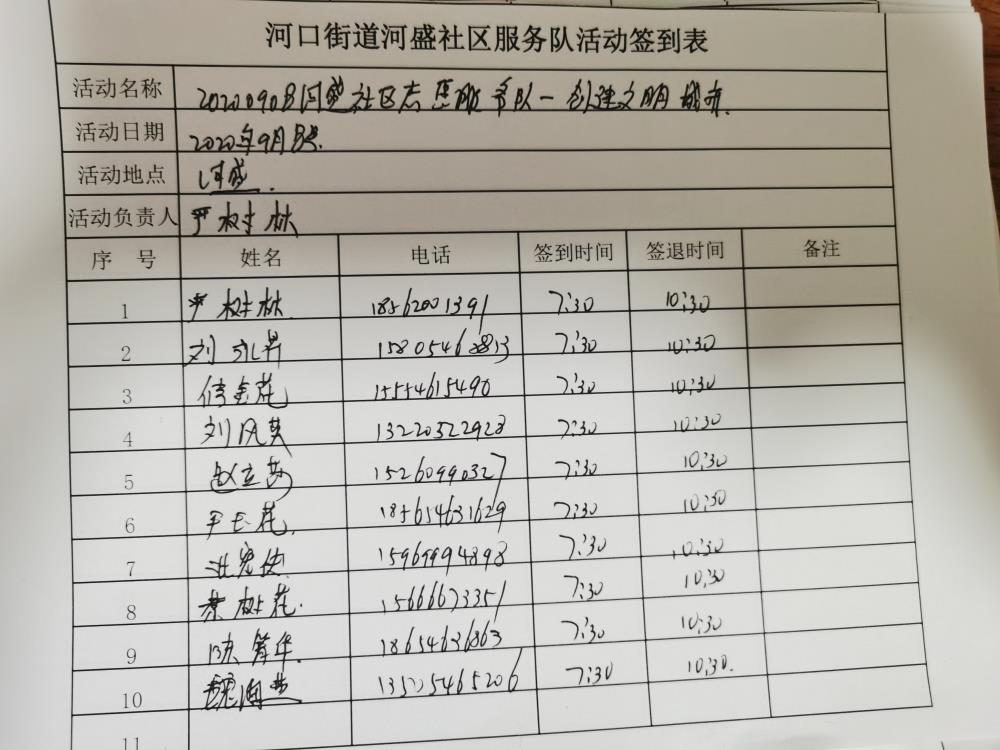 河口街道河盛社区服务队活动签到表
活动名称 20200908河盛社区志愿服务队一创建文明城市.
活动日期 2020年9月8号.
活动地点 河盛.
活动负责人 严树林
序 号 姓名 电话 签到时间 签退时间 备注
1 严树林. 18562001391 7:30 10:30
2 刘 15805462813 7:30 10:30
3 信金花 15554615490 7:30 10:30
4 刘凤英 13220522928 7:30 10:30
5 赵立 15260990327 7:30 10:30
6 花. 185654631629 7:30 10:30
7 15969994898 7:30 10:30
8 树花. 15666673351 7:30 10:30
9 陈 华. 18654636863 7:30 10:30
10 魏海 13505465206 7:30 10:30.
11